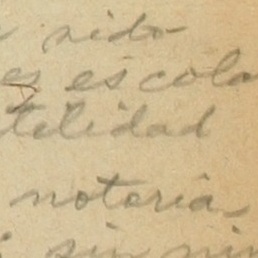 sido
es escola
tilidad
notoria
sin nin